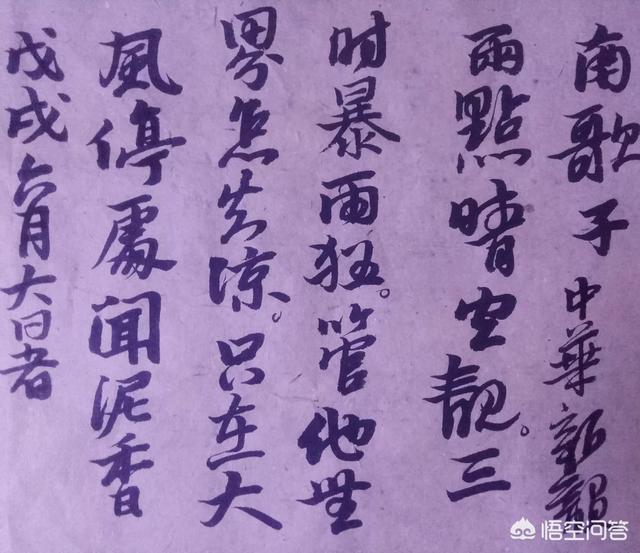 南歌子 中華新韻
兩點晴空靓。三
时暴雨狂。管他世
界怎炎涼。只在大
風停處闻泥香
戊戌六月大日者
悟空问答